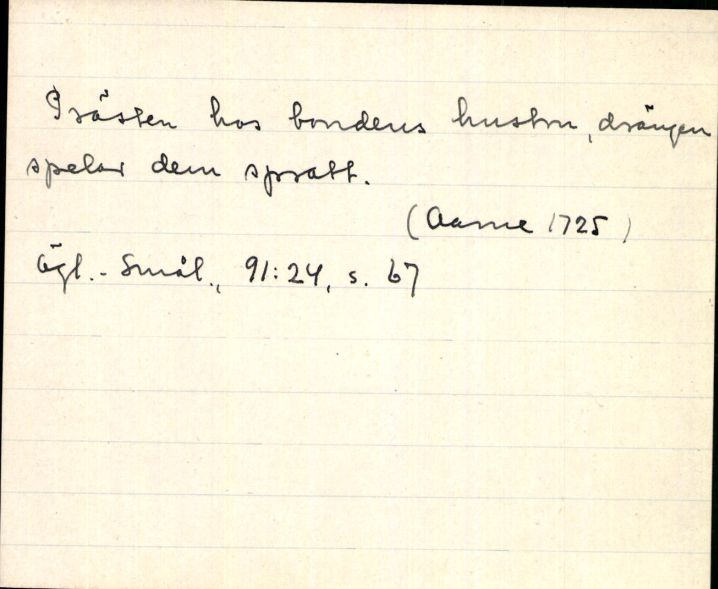 Prästen hos bondens hustru, drängen
spelar dem spratt.
(Aarne 1725)
Ögl.-Smål., 91:24, s. 67